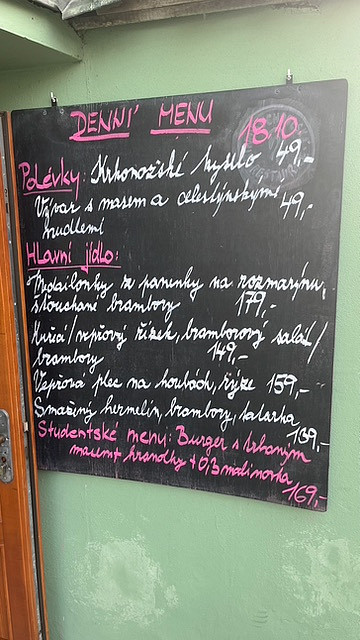 DENNÍ MENU
18.10.
Polévky: Krkonošské kyselo 49,-
Vývar s masem a celestýnskými 49,-
nudlemi
Hlavní jídlo:
Medailonky z panenky na rozmarýnu,
šťouchané brambory 179,-
Kuřecí/vepřový řízek, bramborový salát/
brambory 149,-
Vepřová plec na houbách, rýže 159,-
Smažený hermelín, brambory, tatarka
139,-
Studentské menu: Burger s trhaným
masem + hranolky + 0,3 malinovka
169,-